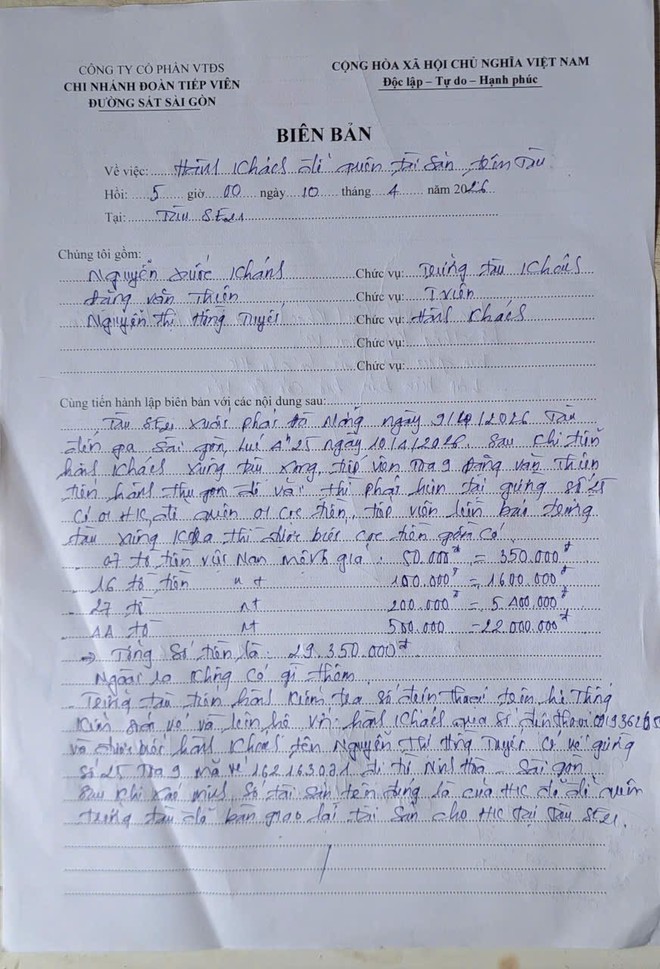 CÔNG TY CỔ PHẦN VTĐS
CHI NHÁNH ĐOÀN TIẾP VIÊN
ĐƯỜNG SẮT SÀI GÒN
CỘNG HÒA XÃ HỘI CHỦ NGHĨA VIỆT NAM
Độc lập – Tự do – Hạnh phúc
BIÊN BẢN
Về việc: Hành khách để quên tài sản trên tàu
Hồi: 5 giờ 00 ngày 10 tháng 4 năm 2026
Tại: Tàu SE21
Chúng tôi gồm:
Nguyễn Khánh Chức vụ: Trưởng tàu khách
Đặng Văn Thiên Chức vụ: T.viên
Nguyễn Thị Hồng Tuyết Chức vụ: Hành khách
Chức vụ:
Chức vụ:
Cùng tiến hành lập biên bản với các nội dung sau:
Tàu SE21 xuất phát Đà Nẵng ngày 9/ /2026 Tàu
đến ga Sài Gòn lúc 4h25 ngày 10/4/2026. Sau khi tiễn
hành khách xuống tàu xong, tiếp viên Toa 9 Đặng Văn Thiên
tiến hành thu gom đồ vải thì phát hiện tại giường số 25
có 01 HK để quên 01 cọc tiền, tiếp viên liền báo trưởng
tàu xuống thì được biết cọc tiền gồm có
07 tờ tiền Việt Nam mệnh giá: 50.000đ = 350.000đ
16 tờ tiền nt 100.000đ = 1.600.000đ
27 tờ nt 200.000đ = 5.400.000đ
44 tờ nt 500.000 = 22.000.000đ
→ Tổng số tiền là: 29.350.000đ
Ngoài ra không có gì thêm.
Trưởng tàu tiến hành kiểm tra số điện thoại trên hệ thống
vé và liên hệ với hành khách qua số điện thoại
và được biết hành khách tên Nguyễn Thị Hồng Tuyết có vé giường
số 25 Toa 9 mã vé 162163031 đi từ Ninh Hòa - Sài Gòn
Sau khi xác minh số tài sản trên đúng là của HK đã để quên
trưởng tàu đã bàn giao lại tài sản cho HK tại tàu SE21.